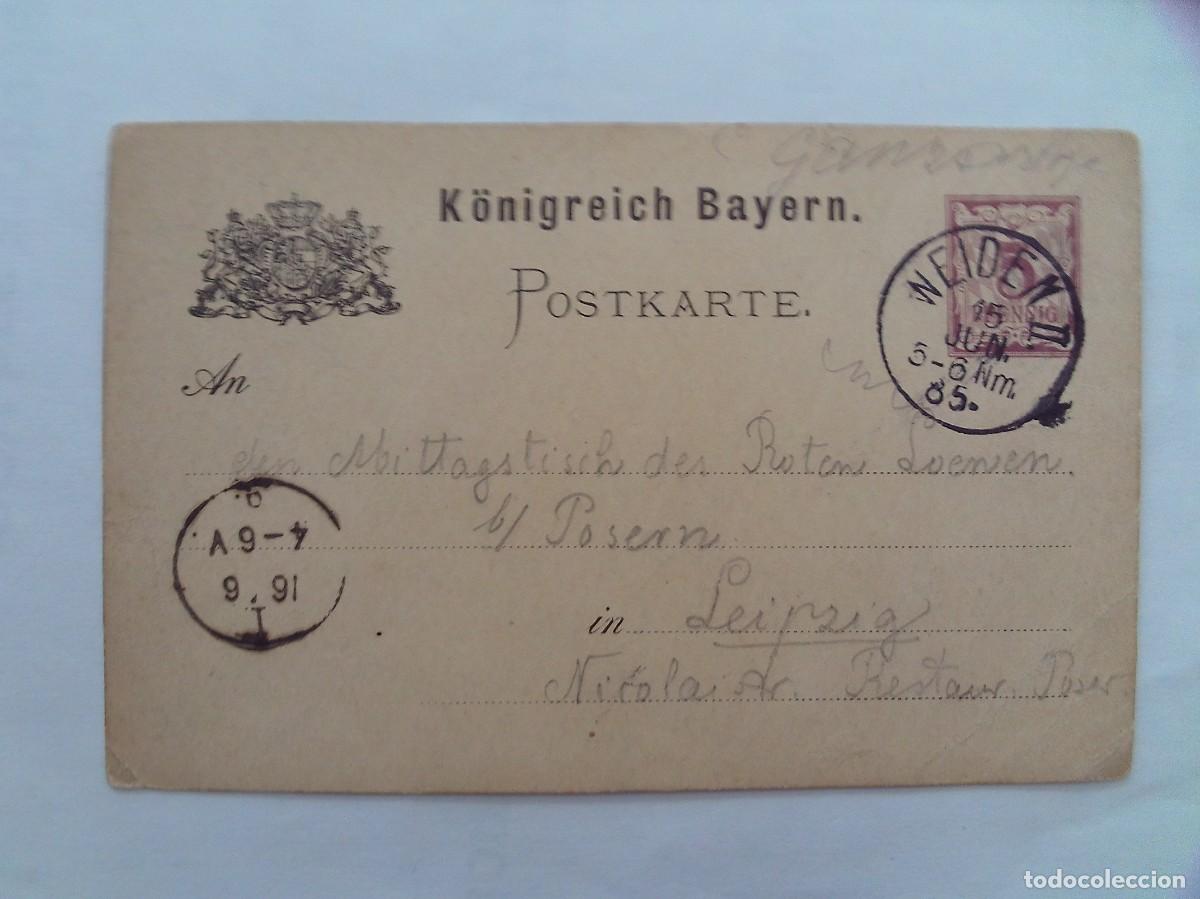 Königreich Bayern.
POSTKARTE.
WEIDEN II
15
JUN.
5-6 Nm.
85.
PFENNIG
An
den Mittagstisch des Roten Loewen
b/ Posern
in Leipzig
Nicolai str. Restaur. Poser
4-6V
16 6
I
todocoleccion